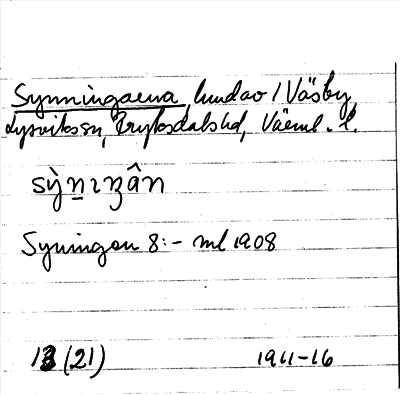 Synningarna, lundar i Väsby
Lysvikssn, Fryksdalshd, Värml. l.
sỳn̠ɩŋân
Syningen 8:- ml 1908
13 (21) 1911-16